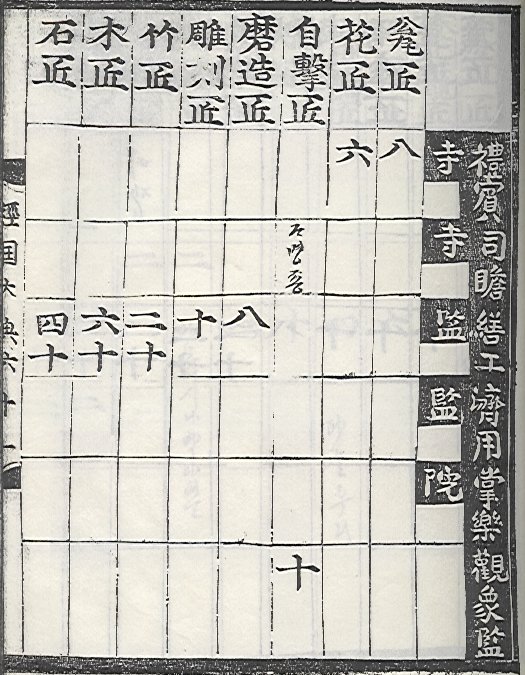 禮賓司贍繕工濟用掌樂觀象監
寺寺監監院
瓮匠 八
花匠 六
自擊匠 十
磨造匠 八
雕刻匠 十
竹匠 二十
木匠 六十
石匠 四十
經国大典六 十一